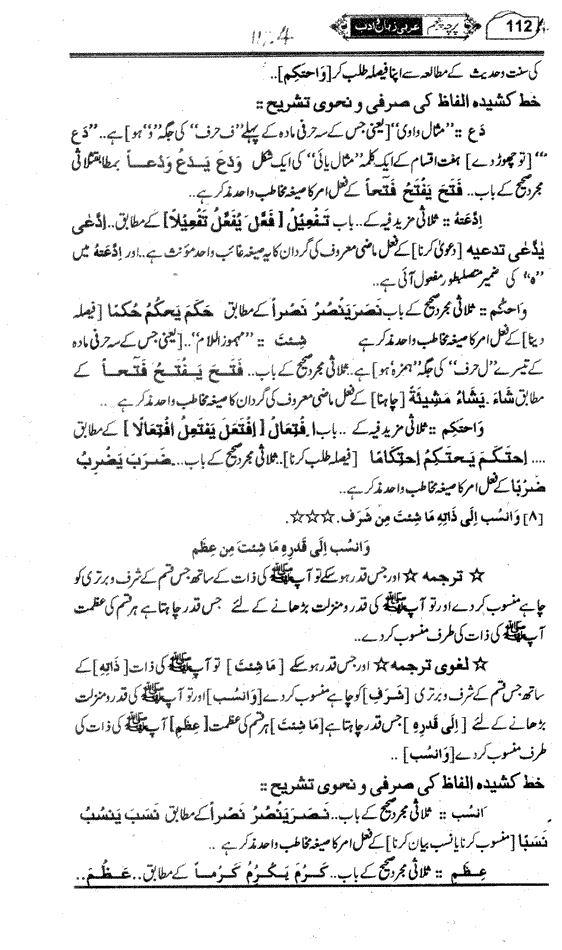 112 پرچہ پنجم عربی زبان و ادب
کی سنت و حدیث کے مطالعہ سے اپنا فیصلہ طلب کر [وَاحتَکِم]..
خط کشیدہ الفاظ کی صرفی و نحوی تشریح ::
دَع :: ”مثال واوی“ [یعنی جس کے سہ حرفی مادہ کے پہلے ”ف حرف“ کی جگہ ”و“ ہو] ہے.. ”دَع
“ [تو چھوڑ دے] ہفت اقسام کے ایک کلمہ ”مثال یائی“ کی ایک شکل وَدَعَ یَدَعُ وَدَعاً بمطابق ثلاثی
مجرد صحیح کے باب.. فَتَحَ یَفْتَحُ فَتحاً کے فعل امر کا صیغہ مخاطب واحد مذکر ہے..
اِدَّعَتهُ :: ثلاثی مزید فیہ کے.. باب تَفْعِیْلُ [فَعَّلَ یُفَعِّلُ تَفْعِیْلاً] کے مطابق.. اِدَّعٰی
یَدَّعٰی تدعیہ [دعویٰ کرنا] کے فعل ماضی معروف کی گردان کا یہ صیغہ غائب واحد مؤنث ہے.. اور اِدَّعَتهُ میں
”ہ“ کی ضمیر متصل بطور مفعول آئی ہے..
وَاحکُم :: ثلاثی مجرد صحیح کے باب نَصَرَ یَنْصُرُ نَصْراً کے مطابق حَکَمَ یَحکُمُ حُکمًا [فیصلہ
دینا] کے فعل امر کا صیغہ مخاطب واحد مذکر ہے شِئتَ :: ”مہموز اللام“.. [یعنی جس کے سہ حرفی مادہ
کے تیسرے ”ل حرف“ کی جگہ ”ہمزہ“ ہو] ہے.. ثلاثی مجرد صحیح کے باب.. فَتَحَ یَفْتَحُ فَتحاً کے
مطابق شَاءَ ۔یَشَاءُ مَشِیئَةً [چاہنا] کے فعل ماضی معروف کی گردان کا صیغہ مخاطب واحد مذکر ہے..
وَاحتَکِم :: ثلاثی مزید فیہ کے .. باب اِفْتَعَالُ [اِفْتَعَلَ یَفتَعِلُ اِفْتِعَالًا] کے مطابق
.... اِحتَکَمَ یَحتَکِمُ اِحتِکَامًا [فیصلہ طلب کرنا].. ثلاثی مجرد صحیح کے باب... ضَرَبَ یَضْرِبُ
ضَرْبًا کے فعل امر کا صیغہ مخاطب واحد مذکر ہے..
[۸] وَانسُب اِلٰی ذَاتِہٖ مَا شِئتَ مِن شَرَفٍ. ☆☆☆.
وَانسُب اِلٰی قَدرِہٖ مَا شِئتَ مِن عِظَمِ
☆ ترجمہ ☆ اور جس قدر ہو سکے تو آپ ﷺ کی ذات کے ساتھ جس قسم کے شرف و برتری کو
چاہے منسوب کر دے اور تو آپ ﷺ کی قدر و منزلت بڑھانے کے لئے جس قدر چاہتا ہے ہر قسم کی عظمت
آپ ﷺ کی ذات کی طرف منسوب کر دے..
☆ لغوی ترجمہ ☆ اور جس قدر ہو سکے [مَا شِئتَ] تو آپ ﷺ کی ذات [ذَاتِہٖ] کے
ساتھ جس قسم کے شرف و برتری [شَرَفٍ] کو چاہے منسوب کر دے [وَانسُب] اور تو آپ ﷺ کی قدر و منزلت
بڑھانے کے لئے [اِلٰی قَدرِہٖ] جس قدر چاہتا ہے [مَا شِئتَ] ہر قسم کی عظمت [عِظَمِ] آپ ﷺ کی ذات کی
طرف منسوب کر دے [وَانسُب] ..
خط کشیدہ الفاظ کی صرفی و نحوی تشریح ::
انسُب :: ثلاثی مجرد صحیح کے باب.. نَصَرَ یَنْصُرُ نَصْراً کے مطابق نَسَبَ یَنسُبُ
نَسَبًا [منسوب کرنا یا نسب بیان کرنا] کے فعل امر کا صیغہ مخاطب واحد مذکر ہے..
عِظَمِ :: ثلاثی مجرد صحیح کے باب.. کَرُمَ یَکْرُمُ کَرُماً کے مطابق.. عَظُمَ..